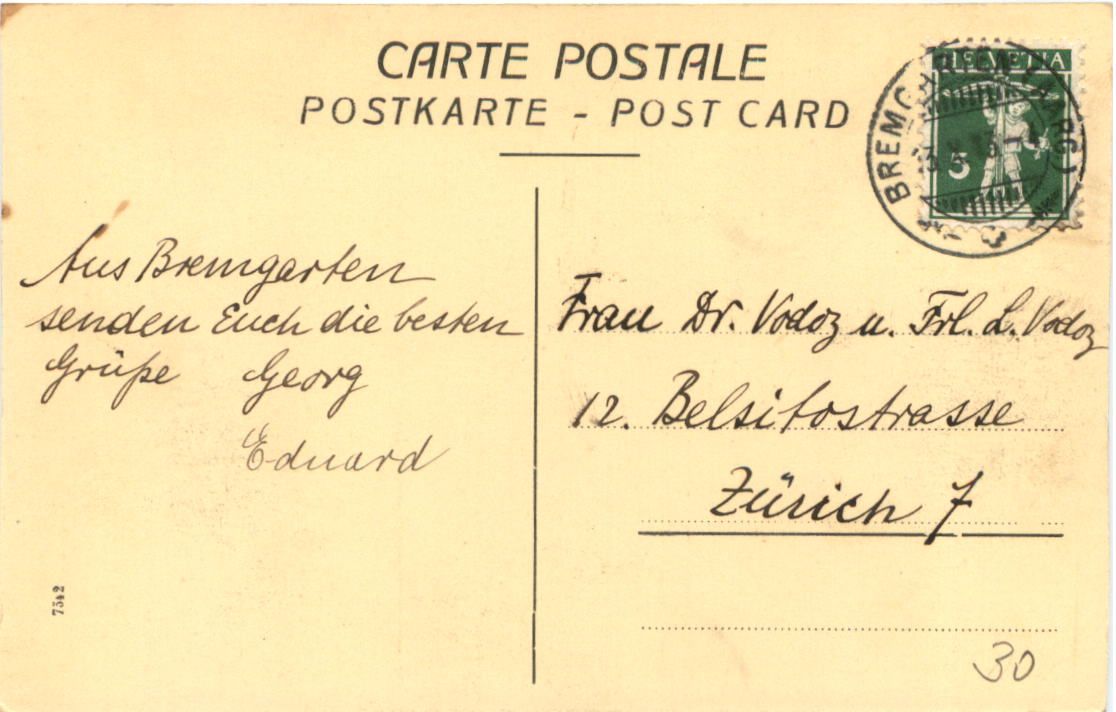 CARTE POSTALE
POSTKARTE - POST CARD
HELVETIA
5
BREMGARTEN (AARG)
Aus Bremgarten
senden Euch die besten
Grüße Georg
Eduard
Frau Dr. Vodoz u. Frl. L. Vodoz
12. Belsitostrasse
Zürich 7
7542
30